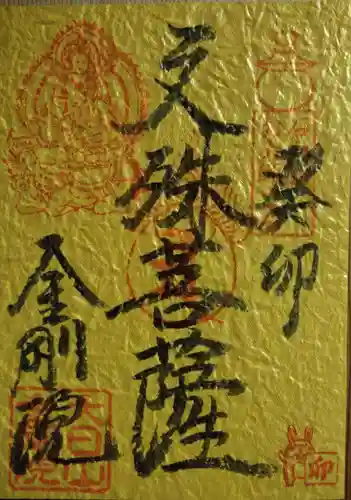 癸卯
文殊菩薩
金剛院
卯